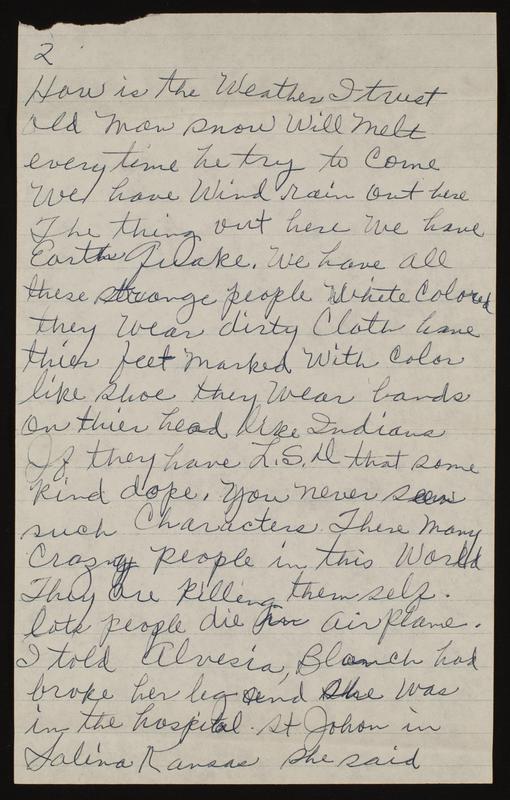 2
How is the Weather I trust
old man snow Will melt
everytime he try to Come
We have Wind rain out here
The thing out here We have
Earth Quake. We have all
these strange people White Colored
they Wear dirty Cloth have
thier feet marked With Color
like shoe they Wear bands
on thier head like Indians
If they have L.S.D that some
Kind dope. You never seen
such Characters. There many
Crazy people in this World
They are killing them self.
lots people die in airplane.
I told Alvesia, Blanch had
broke her leg and she Was
in the hospital. St Johon in
Salina Kansas she said